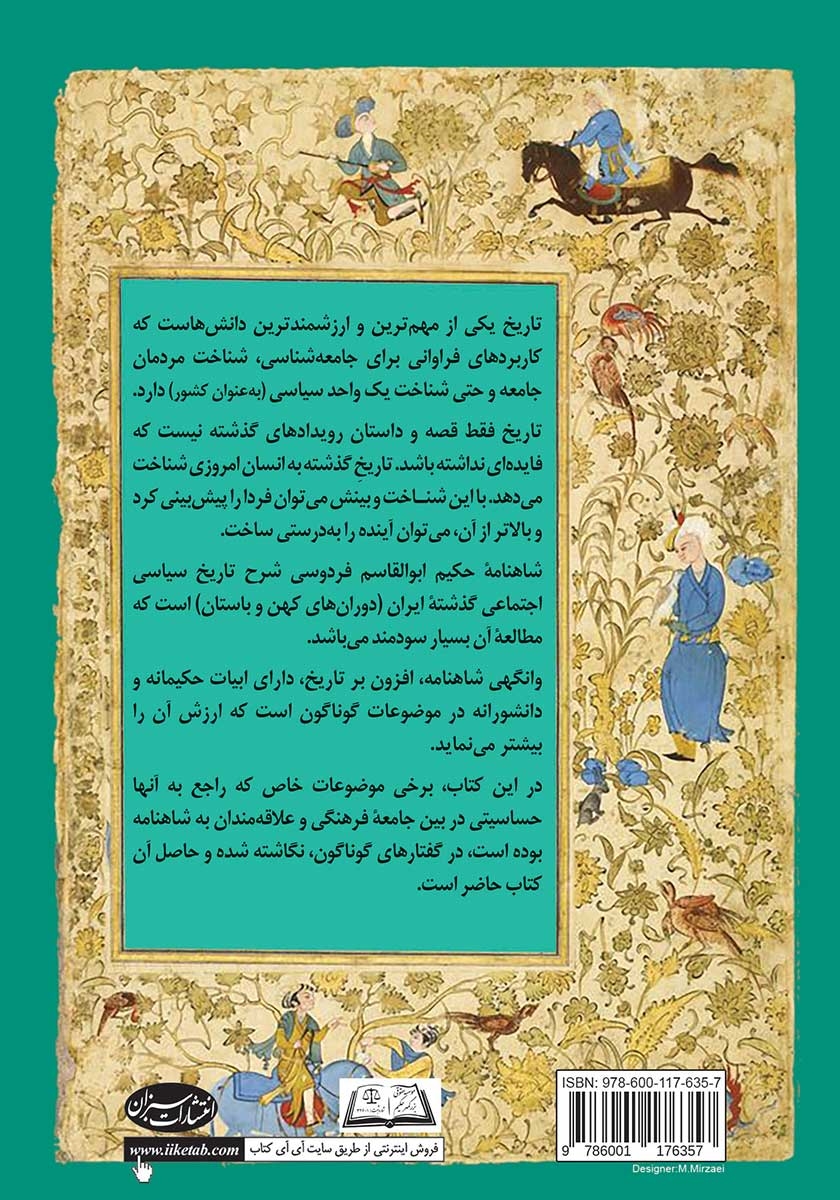 تاریخ یکی از مهم‌ترین و ارزشمندترین دانش‌هاست که
کاربردهای فراوانی برای جامعه‌شناسی، شناخت مردمان
جامعه و حتی شناخت یک واحد سیاسی (به‌عنوان کشور) دارد.
تاریخ فقط قصه و داستان رویدادهای گذشته نیست که
فایده‌ای نداشته باشد. تاریخِ گذشته به انسان امروزی شناخت
می‌دهد. با این شنـاخت و بینش می‌توان فردا را پیش‌بینی کرد
و بالاتر از آن، می‌توان آینده را به‌درستی ساخت.
شاهنامۀ حکیم ابوالقاسم فردوسی شرح تاریخ سیاسی
اجتماعی گذشتۀ ایران (دوران‌های کهن و باستان) است که
مطالعۀ آن بسیار سودمند می‌باشد.
وانگهی شاهنامه، افزون بر تاریخ، دارای ابیات حکیمانه و
دانشورانه در موضوعات گوناگون است که ارزش آن را
بیشتر می‌نماید.
در این کتاب، برخی موضوعات خاص که راجع به آنها
حساسیتی در بین جامعۀ فرهنگی و علاقه‌مندان به شاهنامه
بوده است، در گفتارهای گوناگون، نگاشته شده و حاصل آن
کتاب حاضر است.
انتشارات سبزان
www.iiketab.com
فروش اینترنتی از طریق سایت آی آی کتاب
ISBN: 978-600-117-635-7
9 786001 176357
Designer:M.Mirzaei